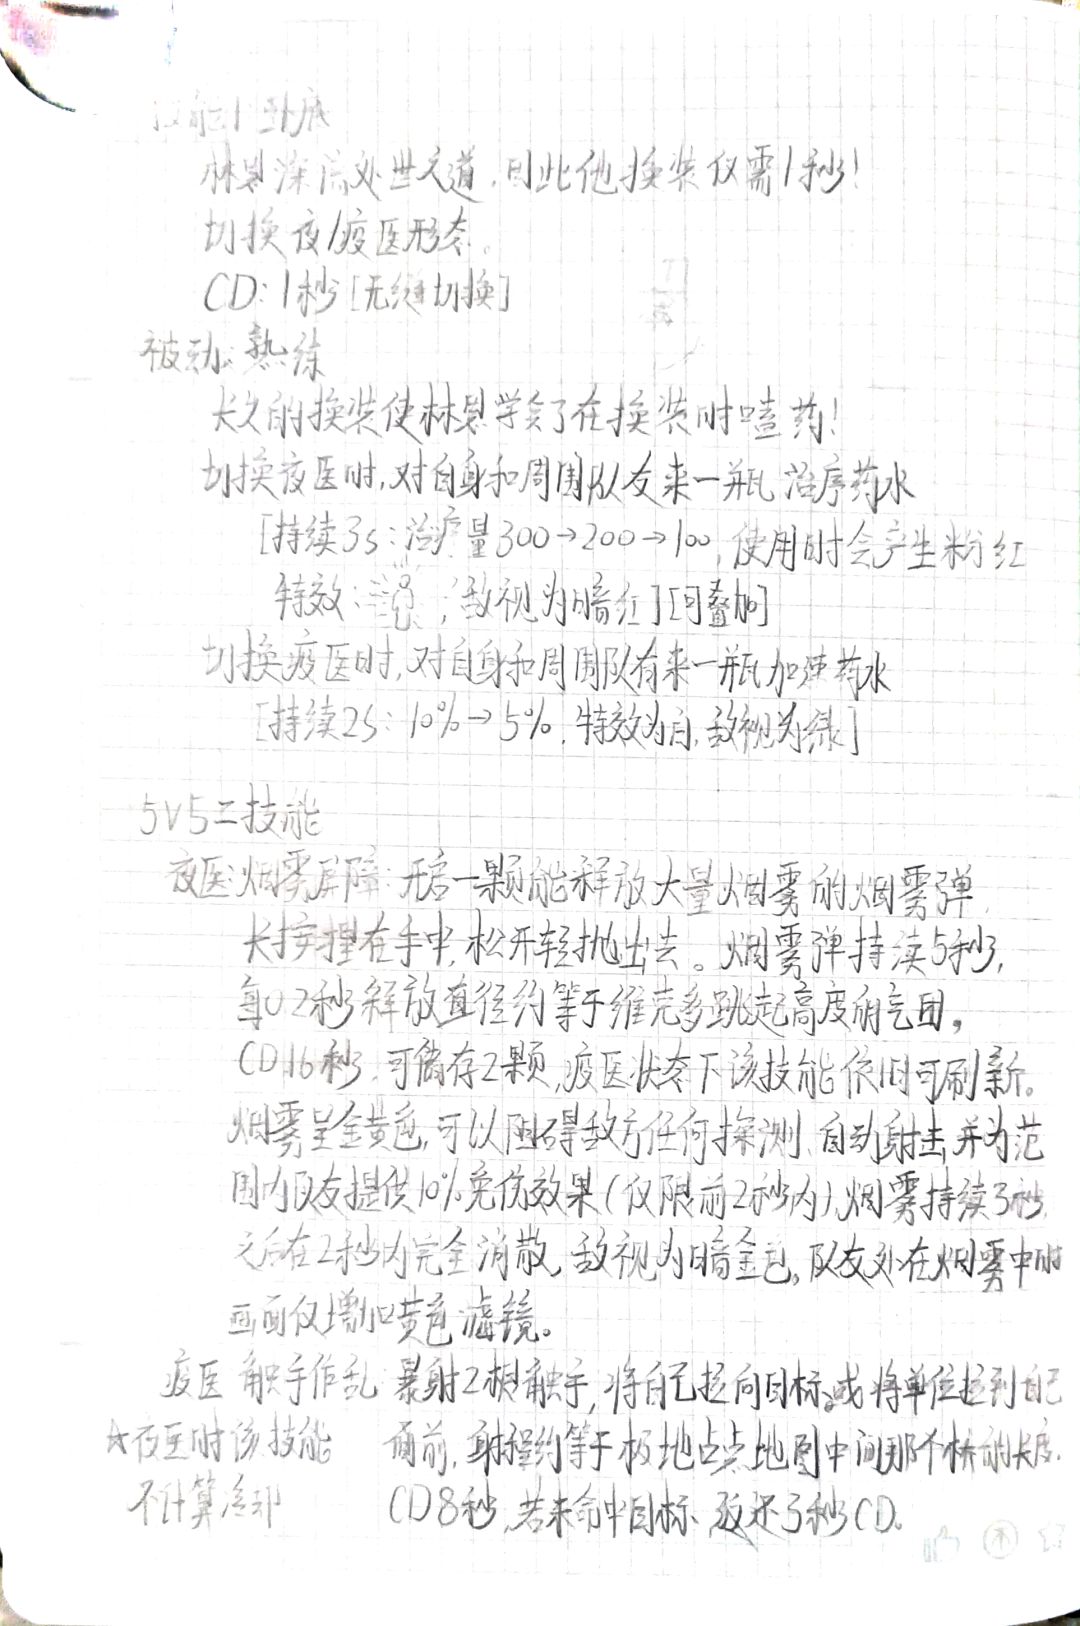 技能1 卧底
林深谙处世之道,因此他换装仅需1秒!
切换夜/疫医形态。
CD:1秒[无缝切换]
被动:熟练
长久的换装使林学会了在换装时嗑药!
切换夜医时,对自身和周围队友来一瓶治疗药水
[持续3s:治疗量300→200→100,使用时会产生粉红
特效: ,敌视为暗红][可叠加]
切换疫医时,对自身和周围队有来一瓶加速药水
[持续2s:10%→5%,特效为白,敌视为绿]
5V5二技能
夜医:烟雾屏障:开启一颗能释放大量烟雾的烟雾弹,
长按捏在手中,松开轻抛出去。烟雾弹持续5秒,
每0.2秒释放直径约等于维克多跳起高度的气团,
CD16秒,可储存2颗,疫医状态下该技能依旧可刷新。
烟雾呈金黄色,可以阻碍敌方任何探测、自动射击,并为范
围内队友提供10%免伤效果(仅限前2秒内),烟雾持续3秒,
之后在2秒内完全消散,敌视为暗金色,队友处在烟雾中时
画面仅增加黄色滤镜。
疫医 触手作乱 暴射2根触手,将自己拉向目标,或将单位拉到自己
☆夜医时该技能 面前,射程约等于极地占点地图中间那个桥的长度,
不计算冷却 CD8秒,若未命中目标、返还3秒CD。